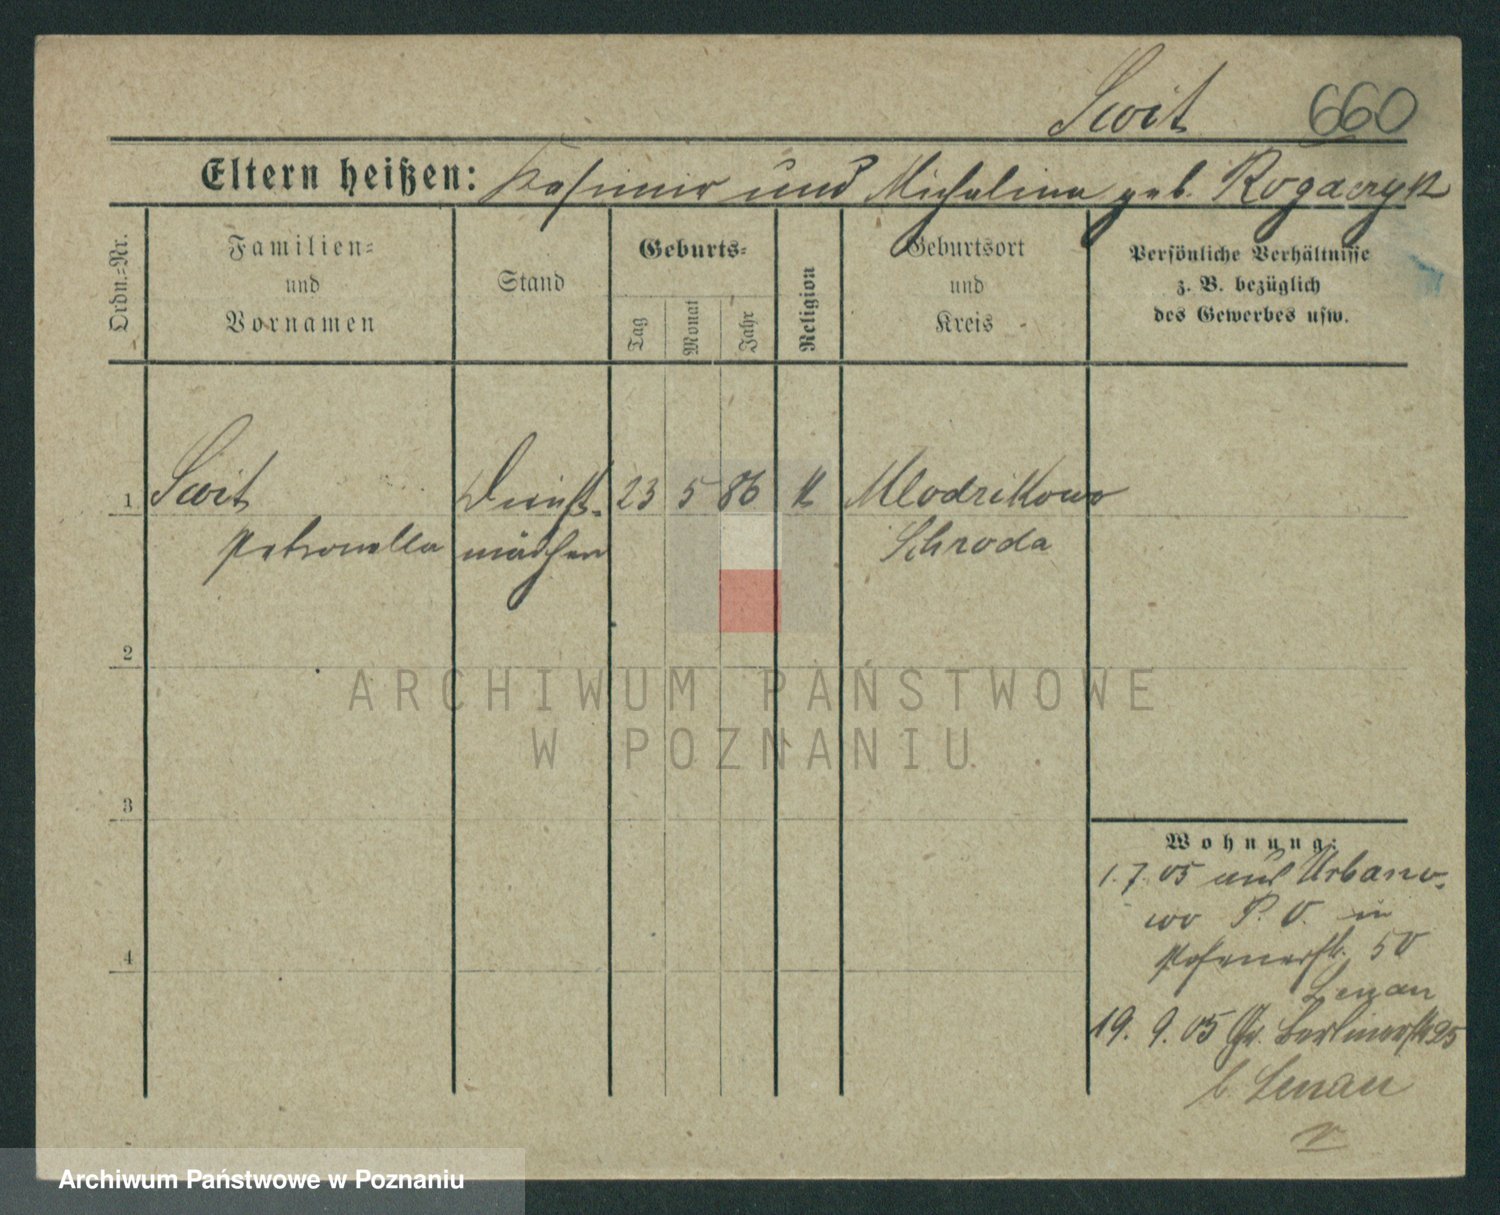 Swit 660
Eltern heißen: Kasimir und Michalina geb. Rogaczyk
Ordn.-Nr.
Familien-
und
Vornamen
Stand
Geburts-
Tag
Monat
Jahr
Religion
Geburtsort
und
Kreis
Persönliche Verhältnisse
z. B. bezüglich
des Gewerbes usw.
1 Swit Dienst- 23 5 86 K Mlodzikowo
Petronella mädchen Schroda
2
ARCHIWUM PAŃSTWOWE
W POZNANIU
3
Wohnung:
1.7.05 aus Urbano-
wo P. O. in
Posenerstr. 50
Lenan
4
19. 9. 05 Gr. Berlinerstr 25
b Lenan
Archiwum Państwowe w Poznaniu